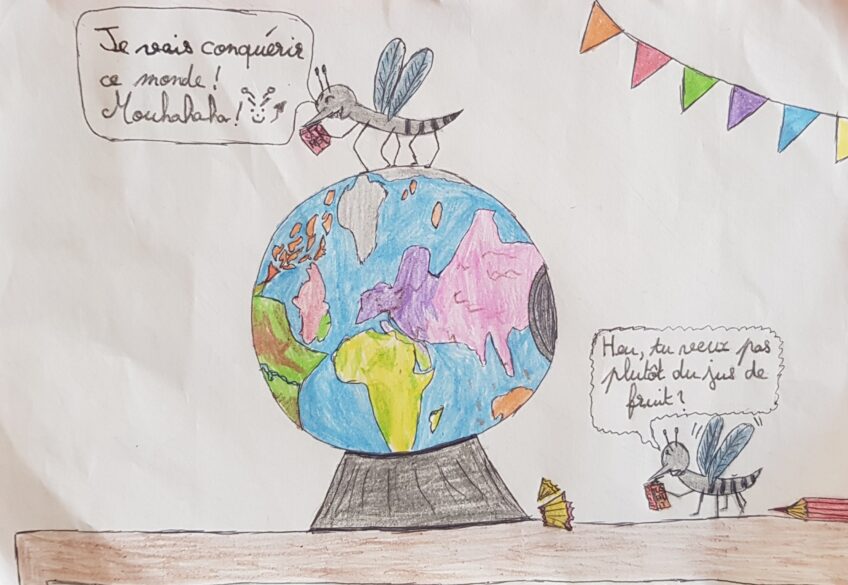 Je vais conquérir
ce monde !
Mouhahaha !
Heu, tu veux pas
plutôt du jus de
fruit ?